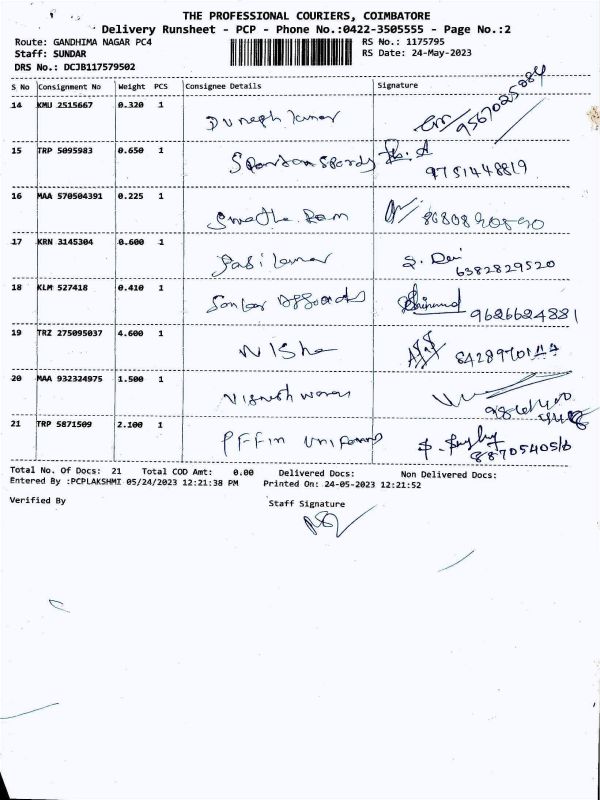 THE PROFESSIONAL COURIERS, COIMBATORE
Delivery Runsheet - PCP - Phone No.:0422-3505555 - Page No.:2
Route: GANDHIMA NAGAR PC4 RS No.: 1175795
Staff: SUNDAR RS Date: 24-May-2023
DRS No.: DCJB117579502
S No Consignment No Weight PCS Consignee Details Signature
14 KMU 2515667 0.320 1 9567025884
15 TRP 5095983 0.650 1 9751448819
16 MAA 570504391 0.225 1 Swathe Ram 8680890590
17 KRN 3145304 0.600 1 6382829520
18 KLM 527418 0.410 1 9626624881
19 TRZ 275095037 4.600 1 NISha
20 MAA 932324975 1.500 1
21 TRP 5871509 2.100 1 PFFin uniforms 8870540510
Total No. Of Docs: 21 Total COD Amt: 0.00 Delivered Docs: Non Delivered Docs:
Entered By :PCPLAKSHMI 05/24/2023 12:21:38 PM Printed On: 24-05-2023 12:21:52
Verified By Staff Signature